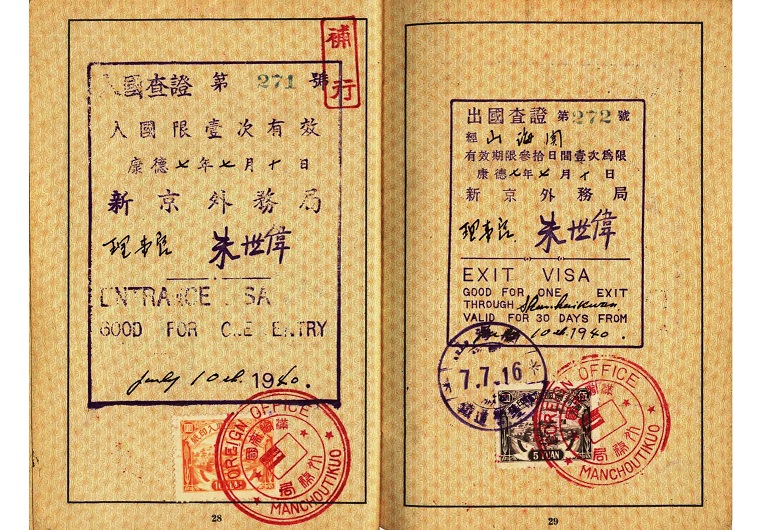 補行
入國查證 第 271 號
入國限壹次有效
康德七年七月十日
新京外務局
理事官 朱世偉
ENTRANCE VISA
GOOD FOR ONE ENTRY
July 10th. 1940.
FOREIGN OFFICE
滿洲帝國
外務局
MANCHOUTIKUO
28
出國查證 第272號
經 山海關
有效期限參拾日間壹次爲限
康德七年七月十日
新京外務局
理事官 朱世偉
EXIT VISA
GOOD FOR ONE EXIT
THROUGH Shanhaikwan
VALID FOR 30 DAYS FROM
July 10th. 1940.
7.7.16
5 YUAN
FOREIGN OFFICE
外務局
MANCHOUTIKUO
29